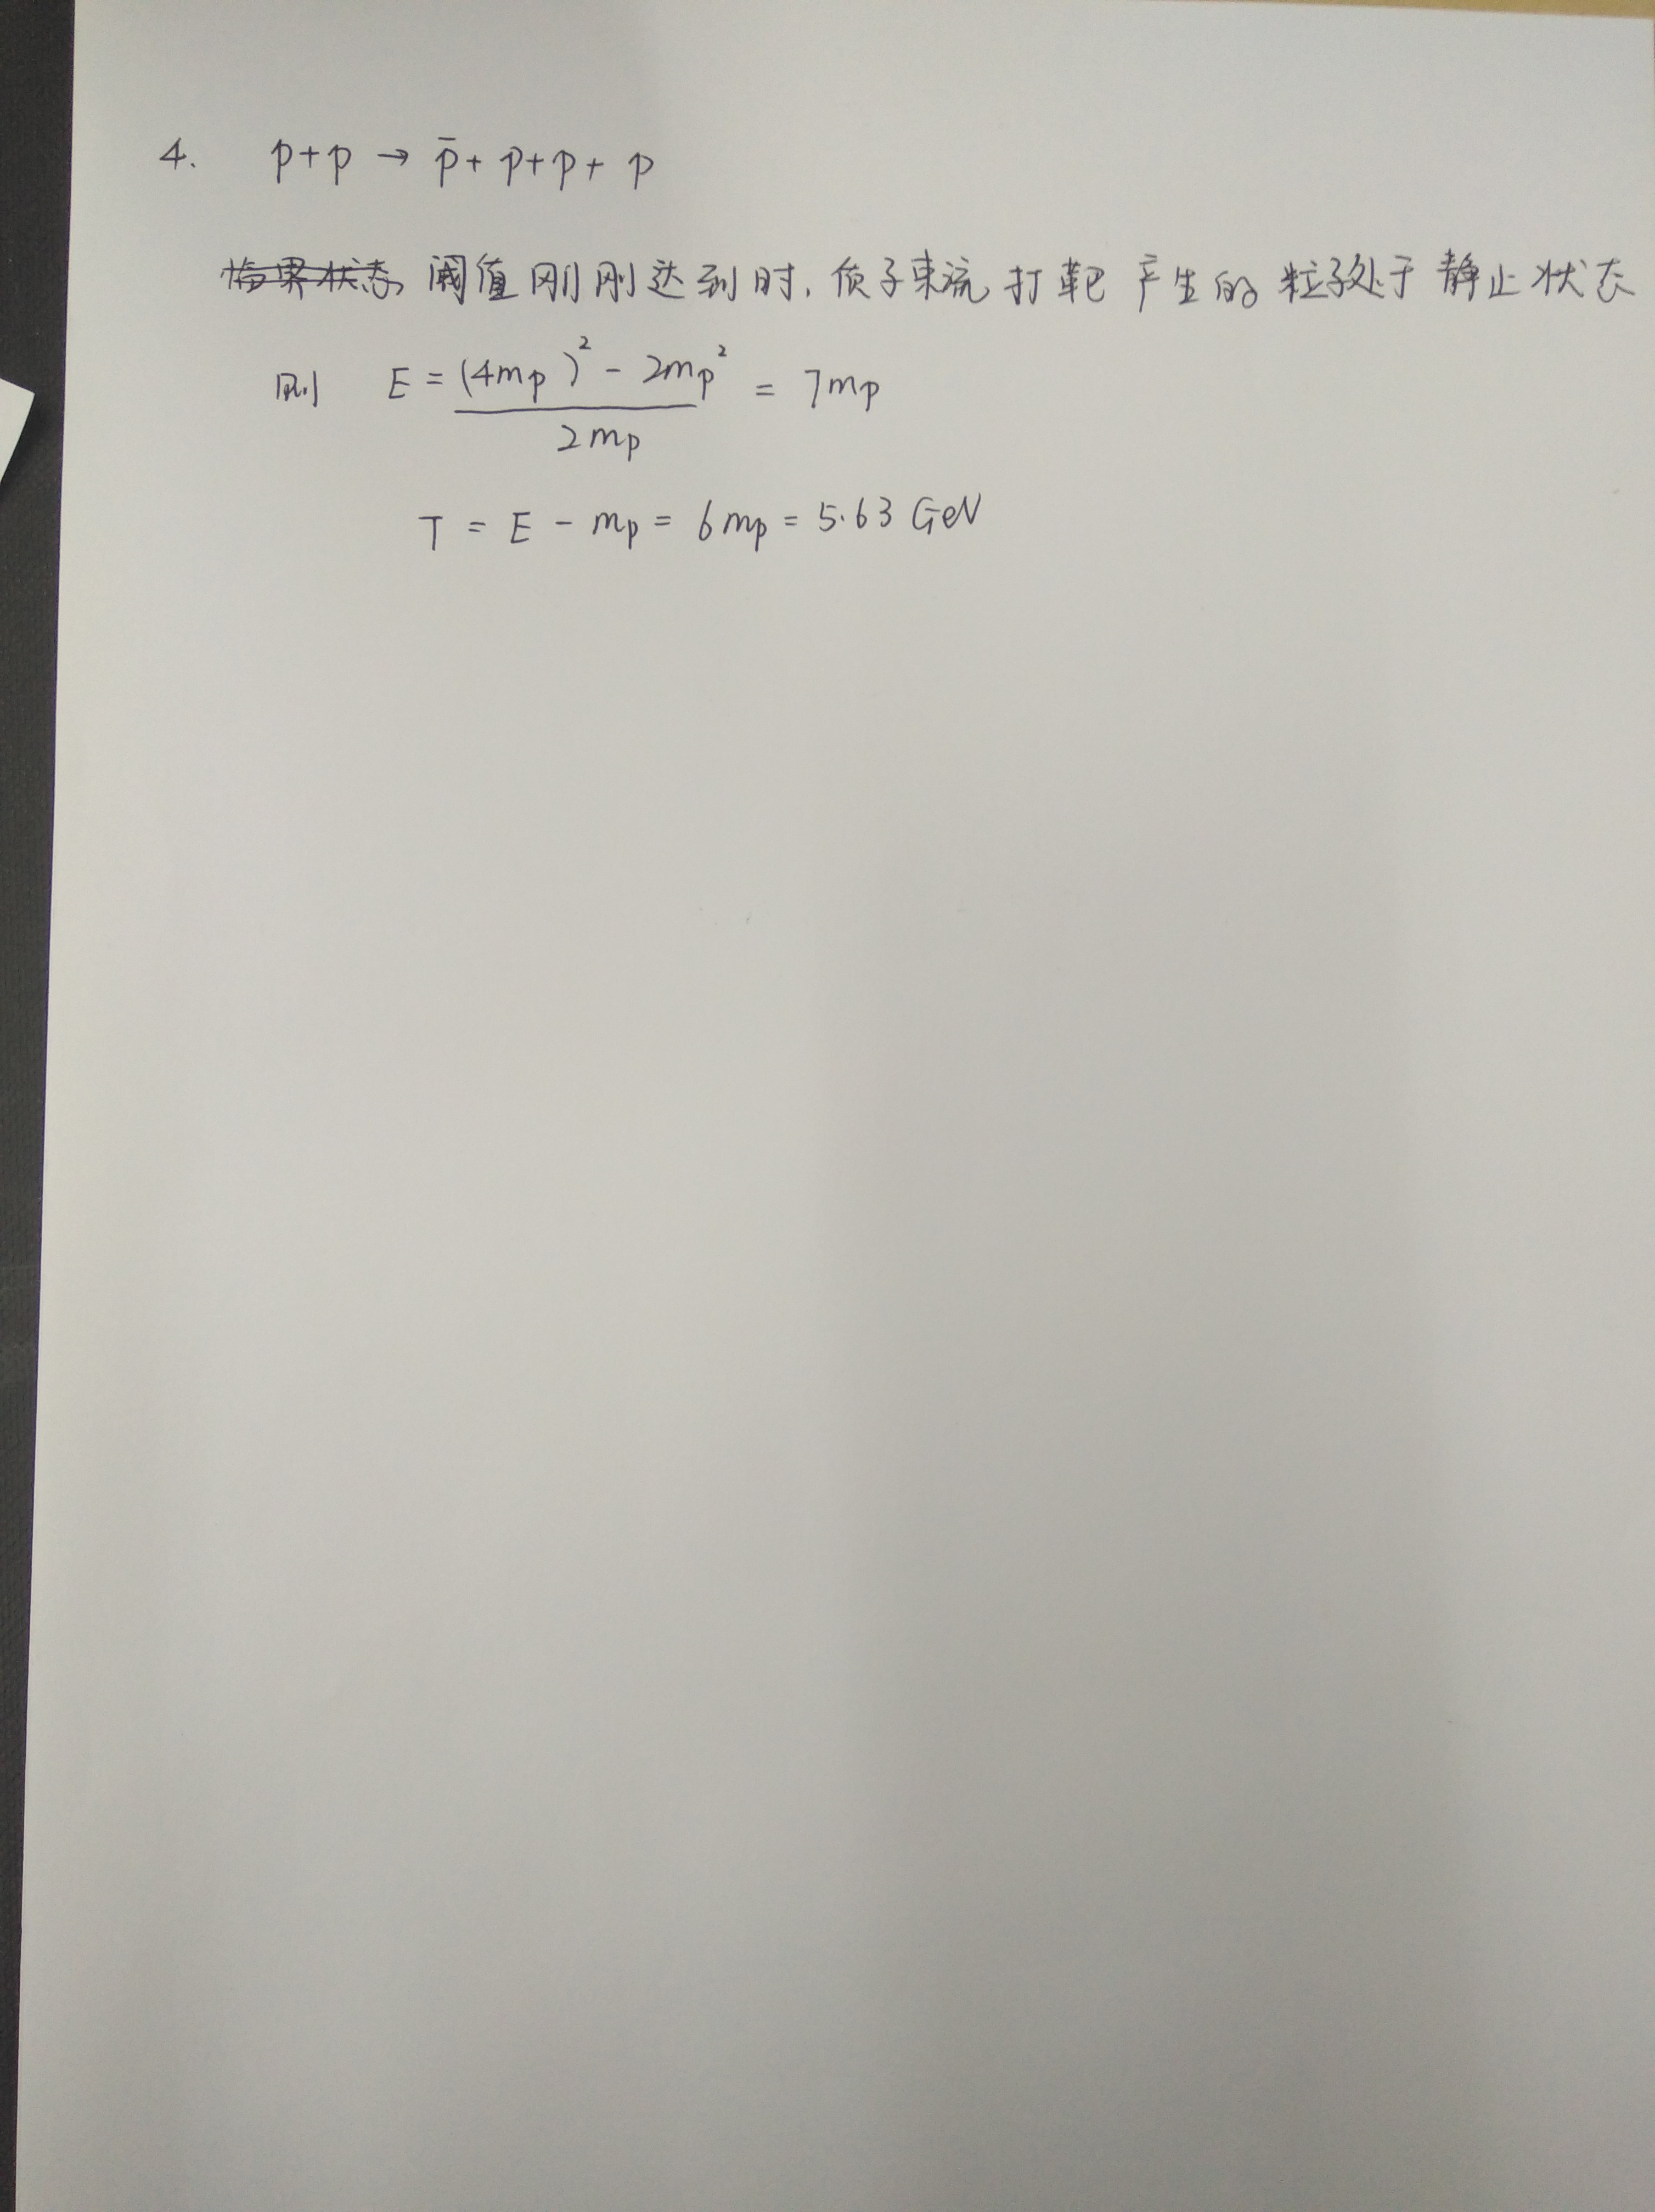 4. p+p → p̄+p+p+p
阈值刚刚达到时,质子束流打靶产生的粒子处于静止状态
则 E = ((4mp)² - 2mp²) / 2mp = 7mp
T = E - mp = 6mp = 5.63 GeV